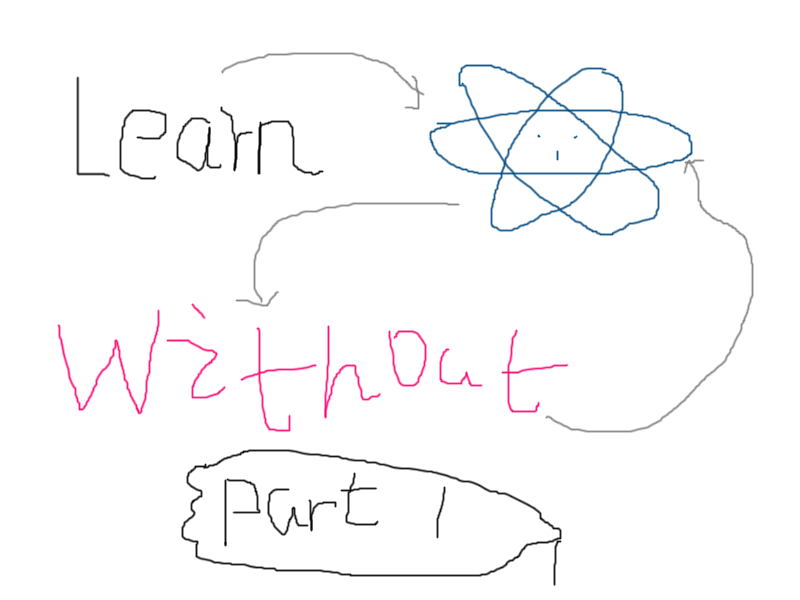 Learn
Without
part 1